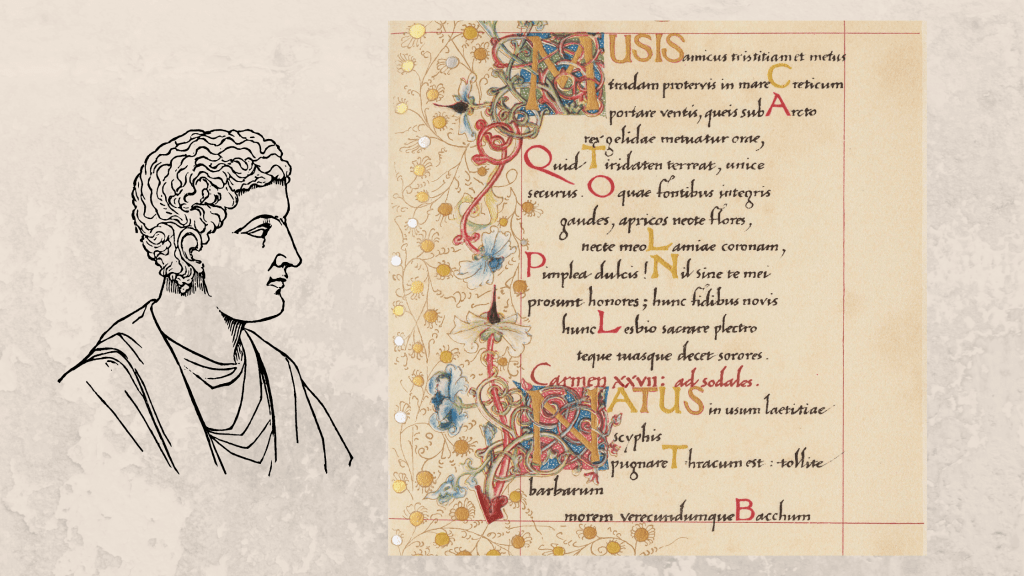 MUSIS amicus tristitiam et metus
tradam protervis in mare Creticum
portare ventis, queis sub Arcto
rex gelidae metuatur orae,
Quid Tiridaten terreat, unice
securus. O quae fontibus integris
gaudes, apricos necte flores,
necte meo Lamiae coronam,
Pimplea dulcis! Nil sine te mei
prosunt honores; hunc fidibus novis
hunc Lesbio sacrare plectro
teque tuasque decet sorores.
Carmen xxvii: ad sodales.
NATUS in usum laetitiae
scyphis
pugnare Thracum est: tollite
barbarum
morem verecundumque Bacchum